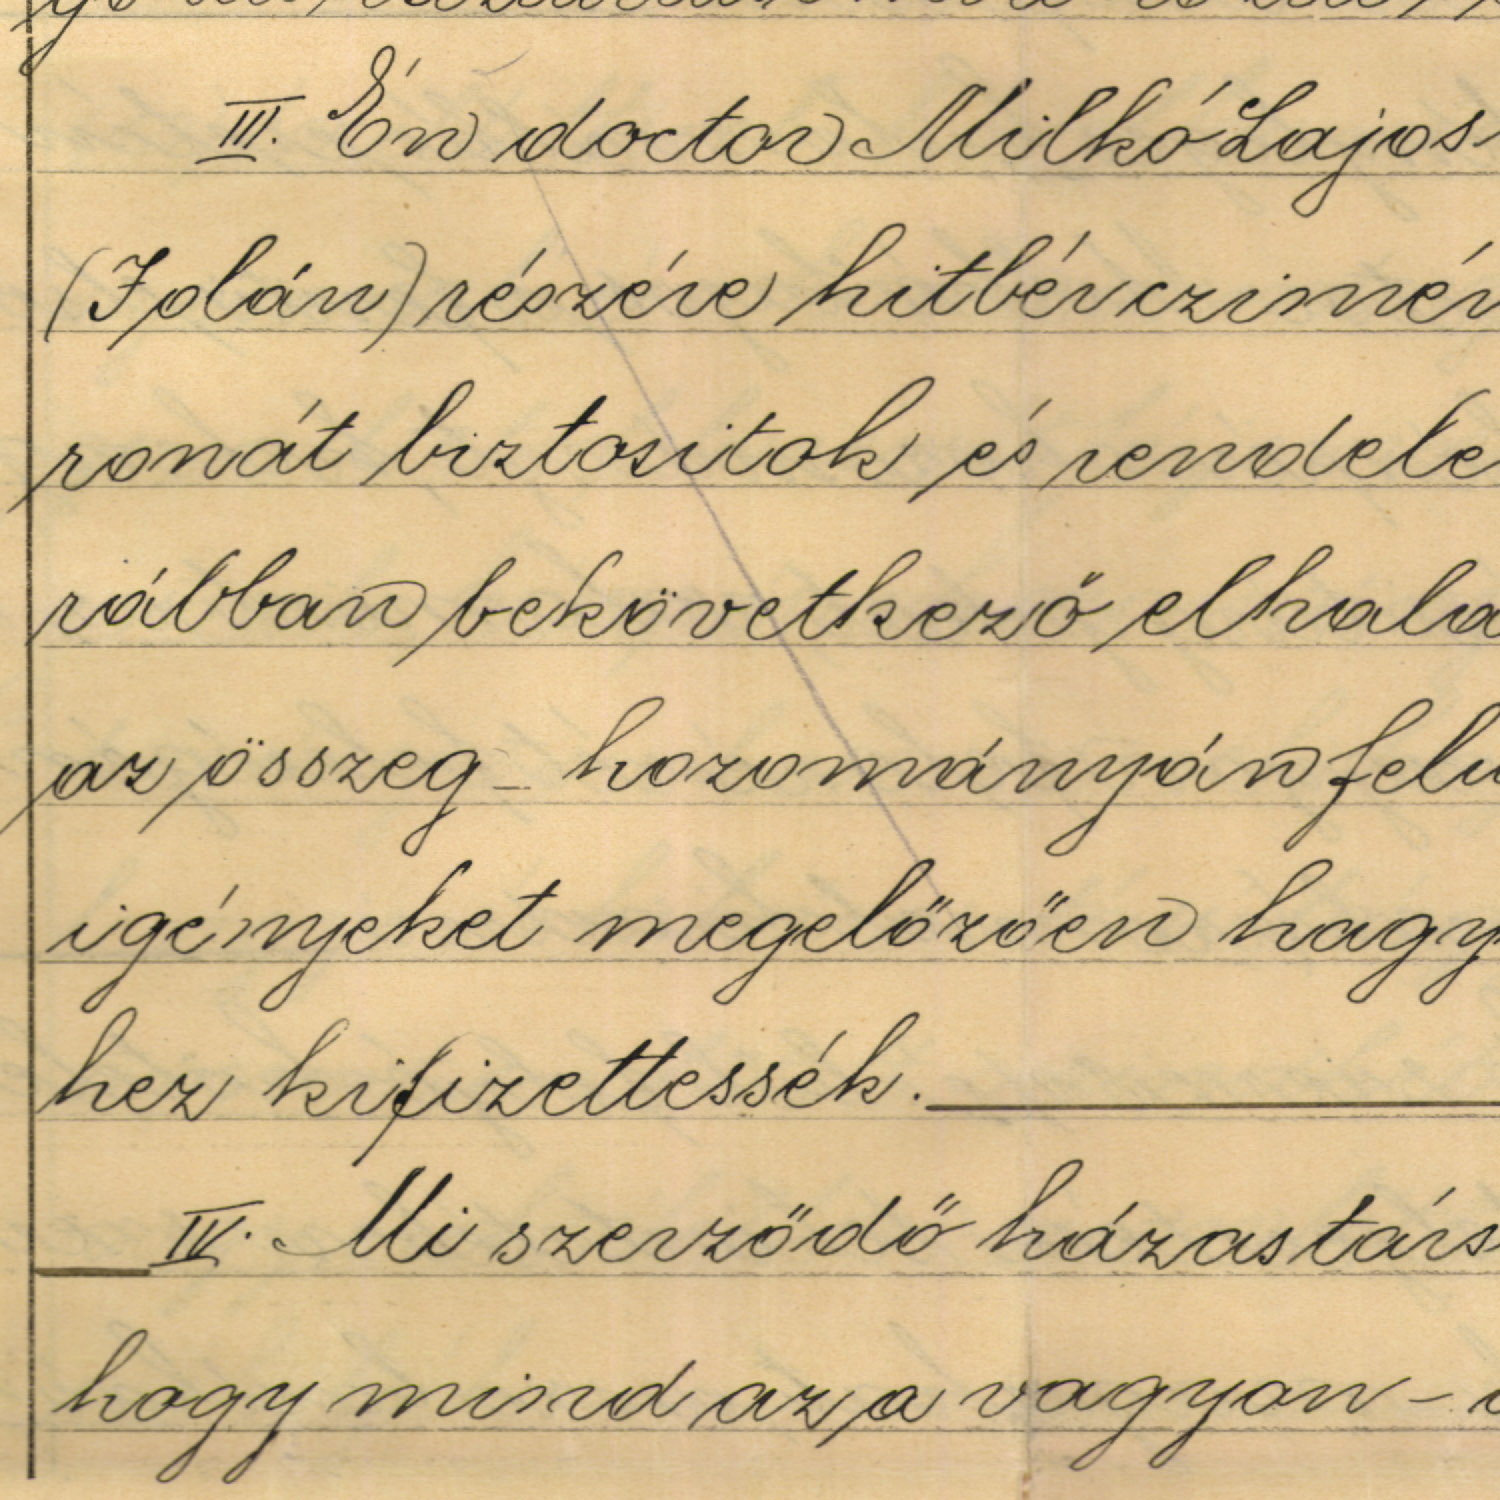 III. Én doctor Milkó Lajos
(Jolán) részére hitbér czimén
ronát biztositok és rendele
rábban bekövetkező elhalá
az összeg – hozományán felü
igényeket megelőzően hagy
hez kifizettessék.
IV. Mi szerződő házastárs
hogy mind az a vagyon –